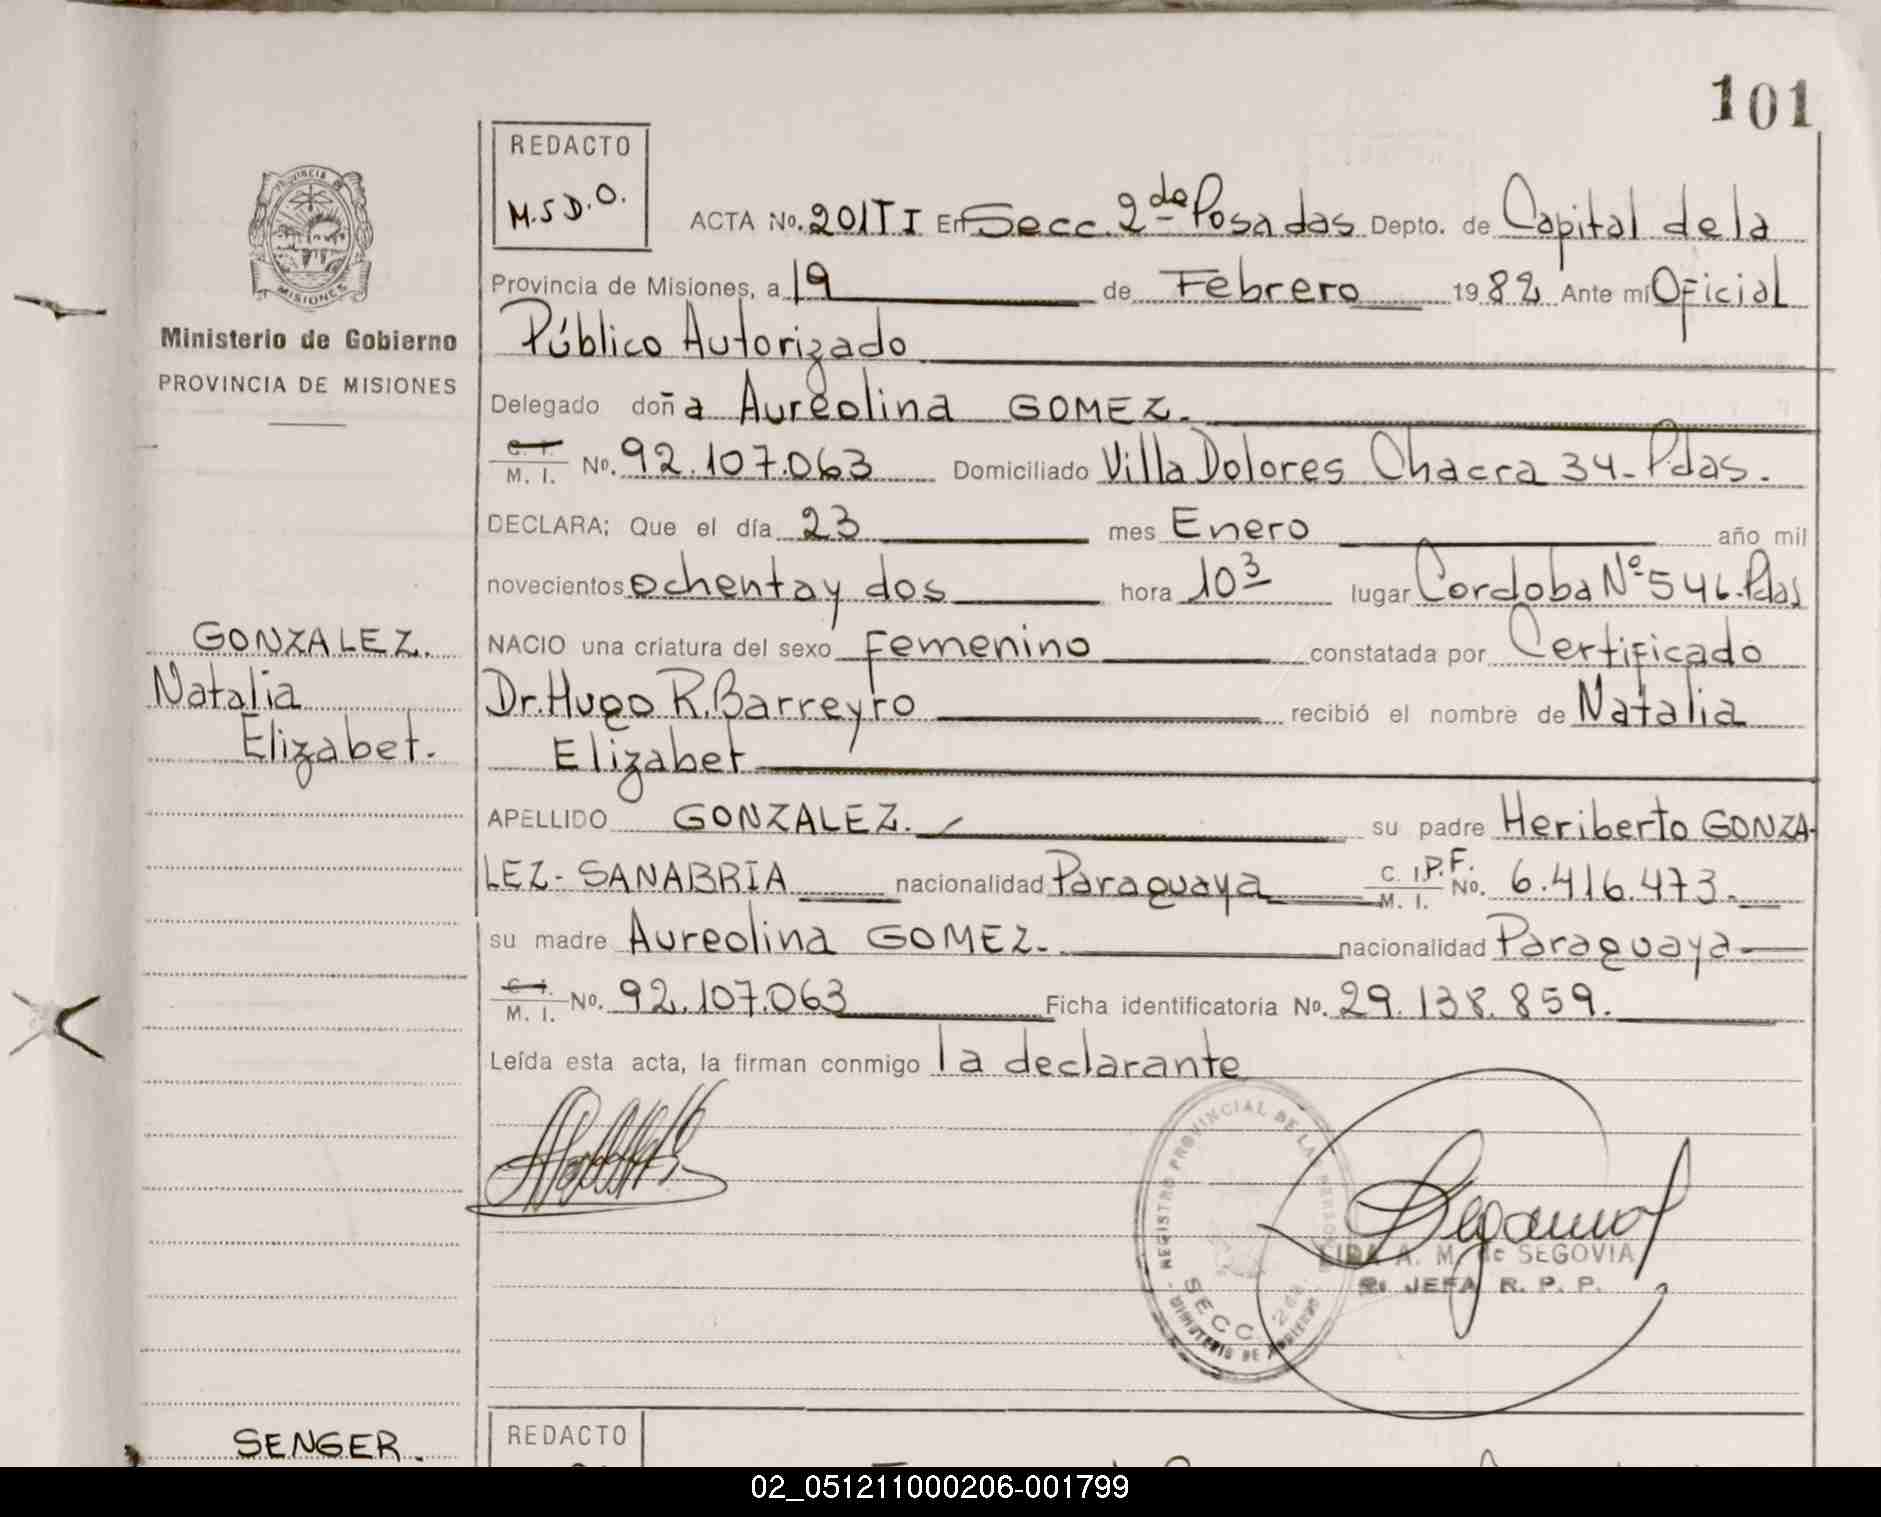 101
REDACTO
M.S D.O.
PROVINCIA DE
MISIONES
Ministerio de Gobierno
PROVINCIA DE MISIONES
ACTA No. 201TI En Secc. 2da Posadas Depto. de Capital de la
Provincia de Misiones, a 19 de Febrero 1982 Ante mí Oficial
Público Autorizado
Delegado doña Aureolina GOMEZ.
C. I. M. I. No. 92.107.063 Domiciliado Villa Dolores Chacra 34- Pdas.
DECLARA; Que el día 23 mes Enero año mil
novecientos ochenta y dos hora 10 3 lugar Cordoba Nº 546. Pdas
GONZALEZ.
Natalia
Elizabet.
NACIO una criatura del sexo Femenino constatada por Certificado
Dr. Hugo R. Barreyro recibió el nombre de Natalia
Elizabet
APELLIDO GONZALEZ. su padre Heriberto GONZA-
LEZ- SANABRIA nacionalidad Paraguaya C. I.P.F. M. I. No. 6.416.473.
su madre Aureolina GOMEZ. nacionalidad Paraguaya
C. I. M. I. No. 92.107.063 Ficha identificatoria No. 29.138.859.
Leída esta acta, la firman conmigo la declarante
REGISTRO PROVINCIAL DE LAS PERSONAS
SECC. 2da.
MINISTERIO DE GOBIERNO
LIDA A. M. de SEGOVIA
JEFA R. P. P.
SENGER.
REDACTO
02_051211000206-001799